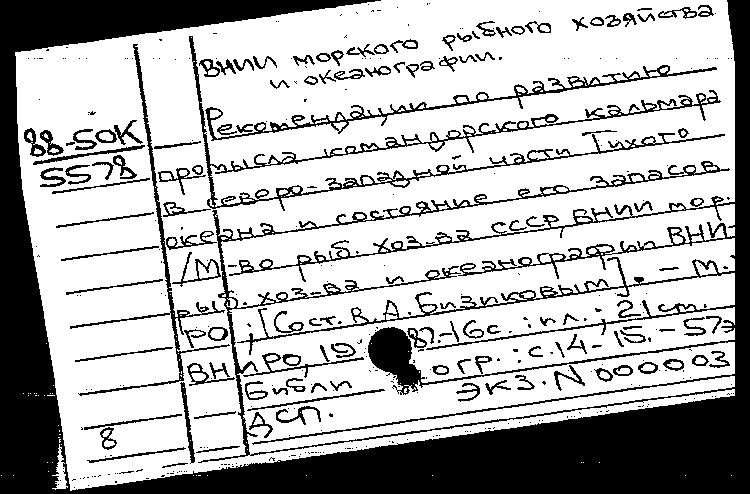 ВНИИ морского рыбного хозяйства
и океанографии.
88-50К
5578
Рекомендации по развитию
промысла командорского кальмара
в северо-западной части Тихого
океана и состояние его запасов
/М-во рыб. хоз-ва СССР, ВНИИ мор.
рыб. хоз-ва и океанографии ВНИ-
РО; [Сост. В.А.Бизиковым]. - М.
ВНИРО, 19 87.-16с.: ил.; 21см.
Библи огр.: с.14-15.- 57э
ДСП. ЭКЗ. N 000003
8